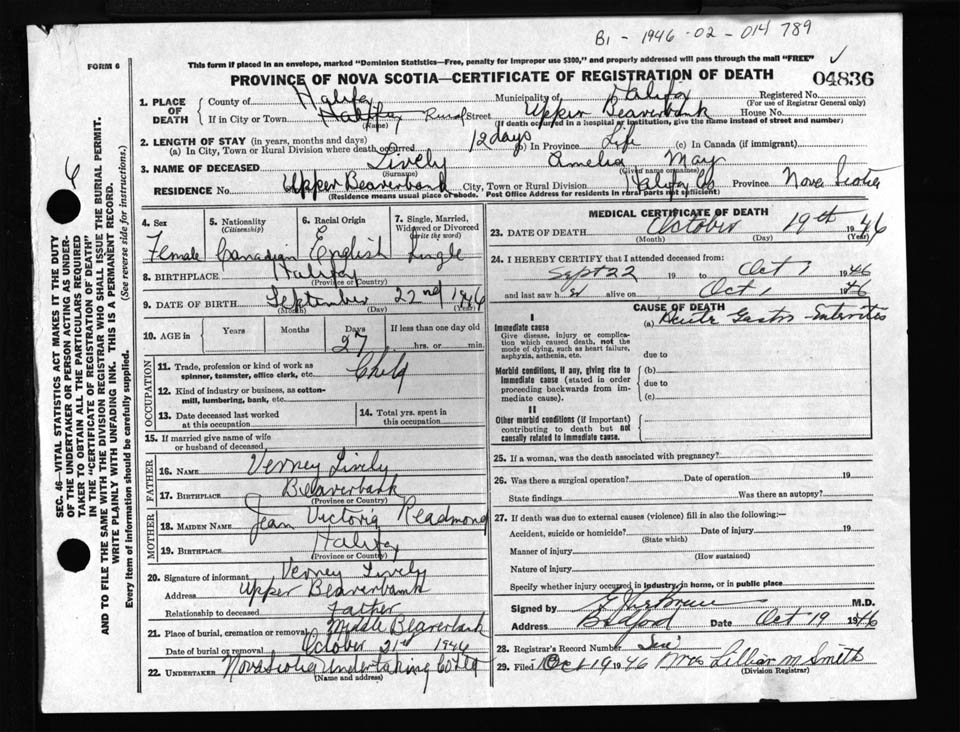 B1 - 1946 - 02 - 014789
FORM 6
This form if placed in an envelope, marked "Dominion Statistics—Free, penalty for improper use $300," and properly addressed will pass through the mail "FREE"
PROVINCE OF NOVA SCOTIA—CERTIFICATE OF REGISTRATION OF DEATH
04836
1. PLACE OF DEATH { County of Halifax Municipality of Halifax Registered No.
(For use of Registrar General only)
If in City or Town Halifax Rural Street Upper Beaverbank House No.
(Name) (If death occurred in a hospital or institution, give the name instead of street and number)
2. LENGTH OF STAY (in years, months and days)
(a) In City, Town or Rural Division where death occurred 12 days (b) In Province Life (c) In Canada (if immigrant)
3. NAME OF DECEASED Lively Amelia May
(Surname) (Given name or names)
RESIDENCE No. Upper Beaverbank City, Town or Rural Division Halifax Co Province Nova Scotia
(Residence means usual place of abode. Post Office Address for residents in rural parts not sufficient)
SEC. 46—VITAL STATISTICS ACT MAKES IT THE DUTY
OF THE UNDERTAKER OR PERSON ACTING AS UNDER-
TAKER TO OBTAIN ALL THE PARTICULARS REQUIRED
IN THE "CERTIFICATE OF REGISTRATION OF DEATH"
AND TO FILE THE SAME WITH THE DIVISION REGISTRAR WHO SHALL ISSUE THE BURIAL PERMIT.
WRITE PLAINLY WITH UNFADING INK. THIS IS A PERMANENT RECORD.
Every item of information should be carefully supplied. (See reverse side for instructions.)
6
4. Sex
Female
5. Nationality
(Citizenship)
Canadian
6. Racial Origin
English
7. Single, Married,
Widowed or Divorced
(Write the word)
Single
8. BIRTHPLACE Halifax
(Province or Country)
9. DATE OF BIRTH September 22nd 1946
(Month) (Day) (Year)
10. AGE in { Years Months Days If less than one day old
27 hrs. or min.
OCCUPATION
11. Trade, profession or kind of work as
spinner, teamster, office clerk, etc. Child
12. Kind of industry or business, as cotton-
mill, lumbering, bank, etc.
13. Date deceased last worked
at this occupation
14. Total yrs. spent in
this occupation
15. If married give name of wife
or husband of deceased
FATHER
16. NAME Verney Lively
17. BIRTHPLACE Beaverbank
(Province or Country)
MOTHER
18. MAIDEN NAME Jean Victoria Readmond
19. BIRTHPLACE Halifax
(Province or Country)
20. Signature of informant Verney Lively
Address Upper Beaverbank
Relationship to deceased Father
21. Place of burial, cremation or removal Middle Beaverbank
Date of burial or removal October 21st 1946
22. UNDERTAKER Nova Scotia Undertaking Co Ltd
(Name and address)
MEDICAL CERTIFICATE OF DEATH
23. DATE OF DEATH October 19th 1946
(Month) (Day) (Year)
24. I HEREBY CERTIFY that I attended deceased from:
Sept 22 19 to Oct 1 1946
and last saw h er alive on Oct 1 1946
CAUSE OF DEATH
I
Immediate cause (a) Acute Gastro-Enteritis
Give disease, injury or complica-
tion which caused death, not the
mode of dying, such as heart failure,
asphyxia, asthenia, etc.
due to
Morbid conditions, if any, giving rise to
immediate cause (stated in order
proceeding backwards from im-
mediate cause).
(b)
due to
(c)
II
Other morbid conditions (if important)
contributing to death but not
causally related to immediate cause.
25. If a woman, was the death associated with pregnancy?
26. Was there a surgical operation? Date of operation 19
State findings Was there an autopsy?
27. If death was due to external causes (violence) fill in also the following:—
Accident, suicide or homicide? Date of injury 19
(State which)
Manner of injury
(How sustained)
Nature of injury
Specify whether injury occurred in industry, in home, or in public place
Signed by M.D.
Address Bedford Date Oct 19 1946
28. Registrar's Record Number
29. Filed Oct 19 1946 Mrs Lillian M Smith
(Division Registrar)